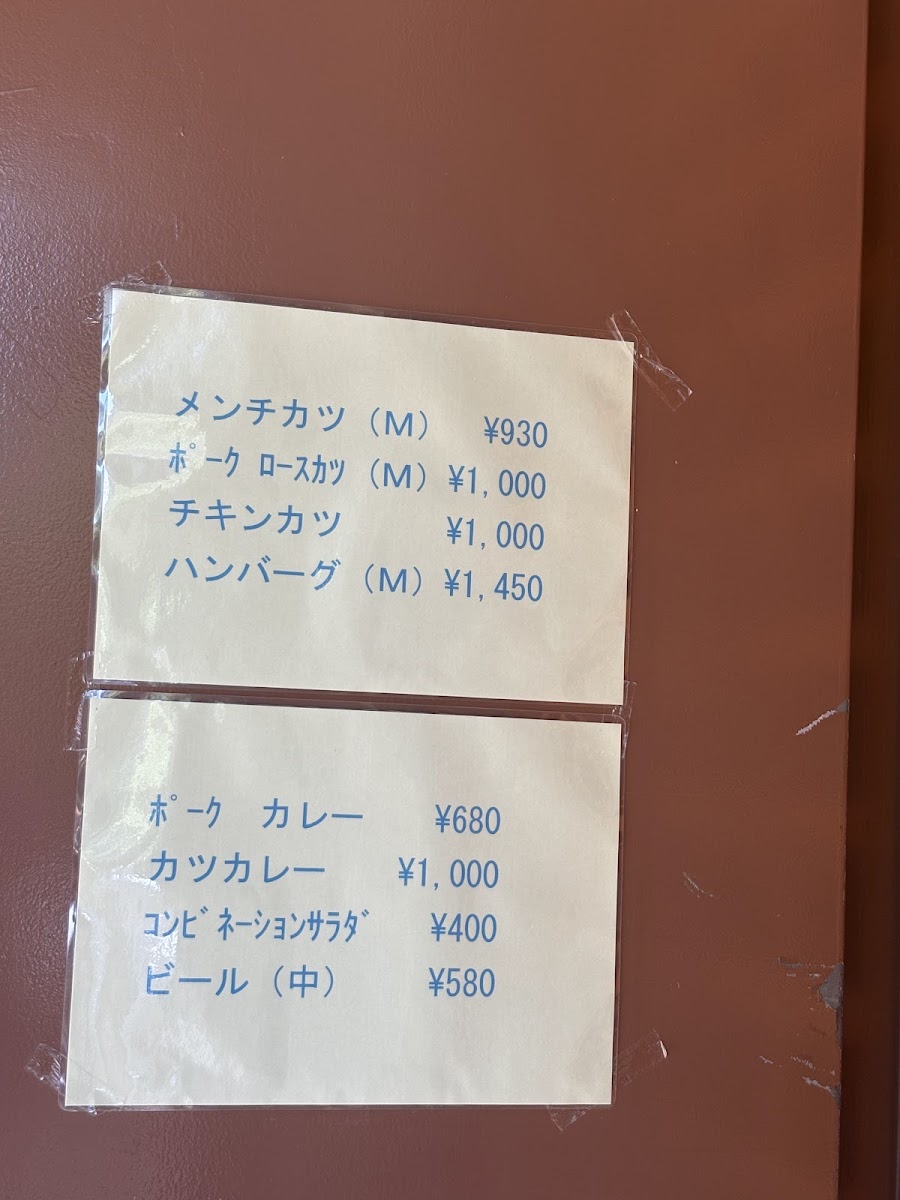 メンチカツ（M） ¥930
ﾎﾟｰｸ ﾛｰｽｶﾂ（M）¥1,000
チキンカツ ¥1,000
ハンバーグ（M）¥1,450
ﾎﾟｰｸ カレー ¥680
カツカレー ¥1,000
ｺﾝﾋﾞﾈｰｼｮﾝｻﾗﾀﾞ ¥400
ビール（中） ¥580